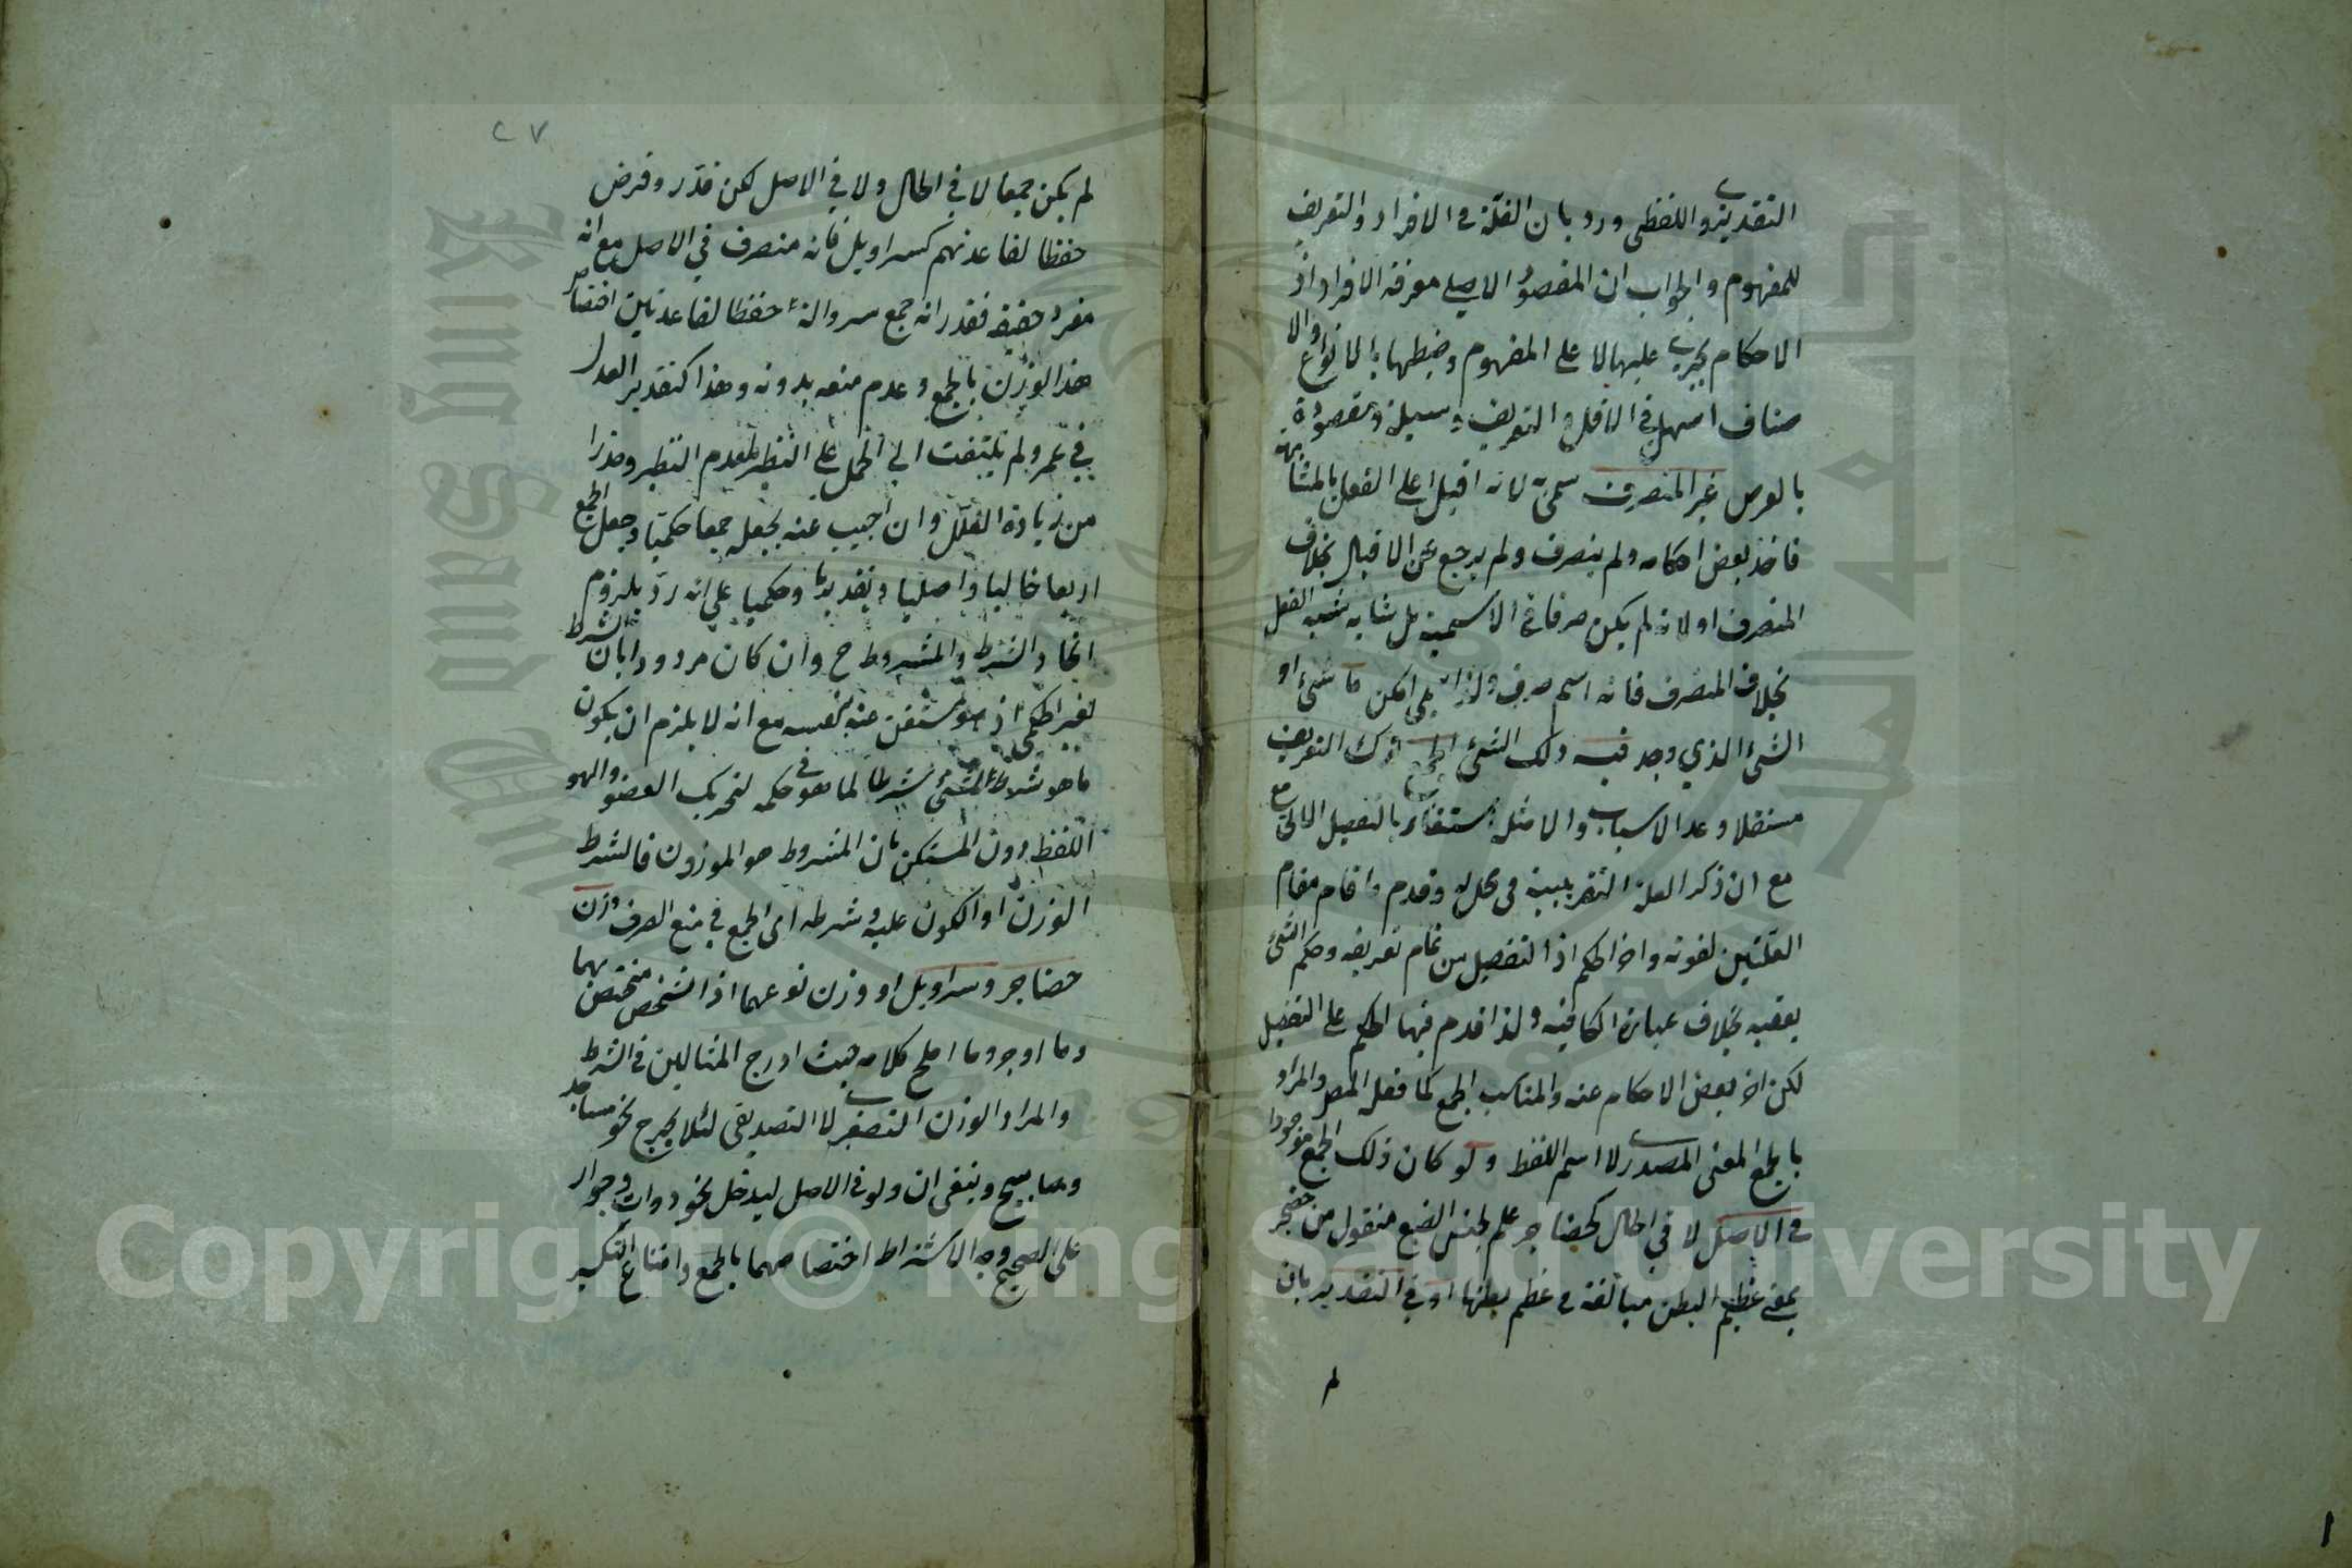 التقديرى واللفظى ورد بان القلة فى الافراد والتعريف
للمفهوم والجواب ان المقصود الاصلي معرفة الافراد اذ
الاحكام تجرى عليها لا على المفهوم وضبطها بالانواع والا
صناف اسهل فى الاقل والتعريف وسيلة ومقصودة
بالعرض غير المنصرف سمى به لانه اقبل على الفعل بالمشابهة
فاخذ بعض احكامه ولم ينصرف ولم يرجع عن الاقبال بخلاف
المنصرف او لانه لم يكن صرفا فى الاسمية بل شابه شبه الفعل
بخلاف المنصرف فانه اسم صرف ولذا سمى امكن ما شئ او
الشئ الذي وجد فيه ذلك الشئ ترك التعريف
مستقلا وعد الاسباب والامثلة استغناء بالتفصيل الاتى
مع ان ذكر العلة التقريبية فى محله وقدم واقام مقام
العلتين لقوته واخر الحكم اذ التفصيل من تمام تعريفه وحكم الشئ
يعقبه بخلاف عبارة الكافية ولذا قدم فيها الحكم على التفصيل
لكن اخر بعض الاحكام عنه والمناسب الجمع كما فعل المص والمراد
بالجمع المعنى المصدرى لا اسم اللفظ ولو كان ذلك الجمع موجودا
فى الاصل لا في الحال كحضاجر علم لجنس الضبع منقول من حضجر
بمعنى عظيم البطن مبالغة فى عظم بطنها او في التقدير بان
لم
٢٧
لم يكن جمعا لا في الحال ولا في الاصل لكن قدر وفرض
حفظا لقاعدتهم كسراويل فانه منصرف في الاصل مع انه
مفرد حقيقة فقدر انه جمع سروالة حفظا لقاعدتين اختصاص
هذا الوزن بالجمع وعدم منعه بدونه وهذا كتقدير العدل
في عمر ولم يلتفت الى الحمل على النظير لعدم النظير وحذرا
من زيادة العلل وان اجيب عنه بجعله جمعا حكميا وجعل الجمع
اربعا حاليا واصليا وتقديريا وحكميا على انه رد بلزوم
اتحاد الشرط والمشروط ح وان كان مردودا بان الشرط
لغير الحكمى اذ هو مستغن عنه بنفسه مع انه لا يلزم ان يكون
ما هو شرط لشئ شرطا لما هو فى حكمه لتحريك العضو والهو
اللفظ دون المستكن بان المشروط هو الموزون فالشرط
الوزن او الكون عليه وشرطه اى الجمع في منع الصرف وزن
حضاجر وسراويل او وزن نوعهما اذ الشخص مختص بهما
وما اوجز وما املح كلامه حيث ادرج المثالين فى الشرط
والمراد الوزن التصغيرى لا التصديقى لئلا يخرج نحو مساجد
ومصابيح وينبغى ان ولو فى الاصل ليدخل نحو دواب وجوار
على الصحيح وجه الاشتراط اختصاصهما بالجمع وامتناع التكسير
١
Copyright © King Saud University